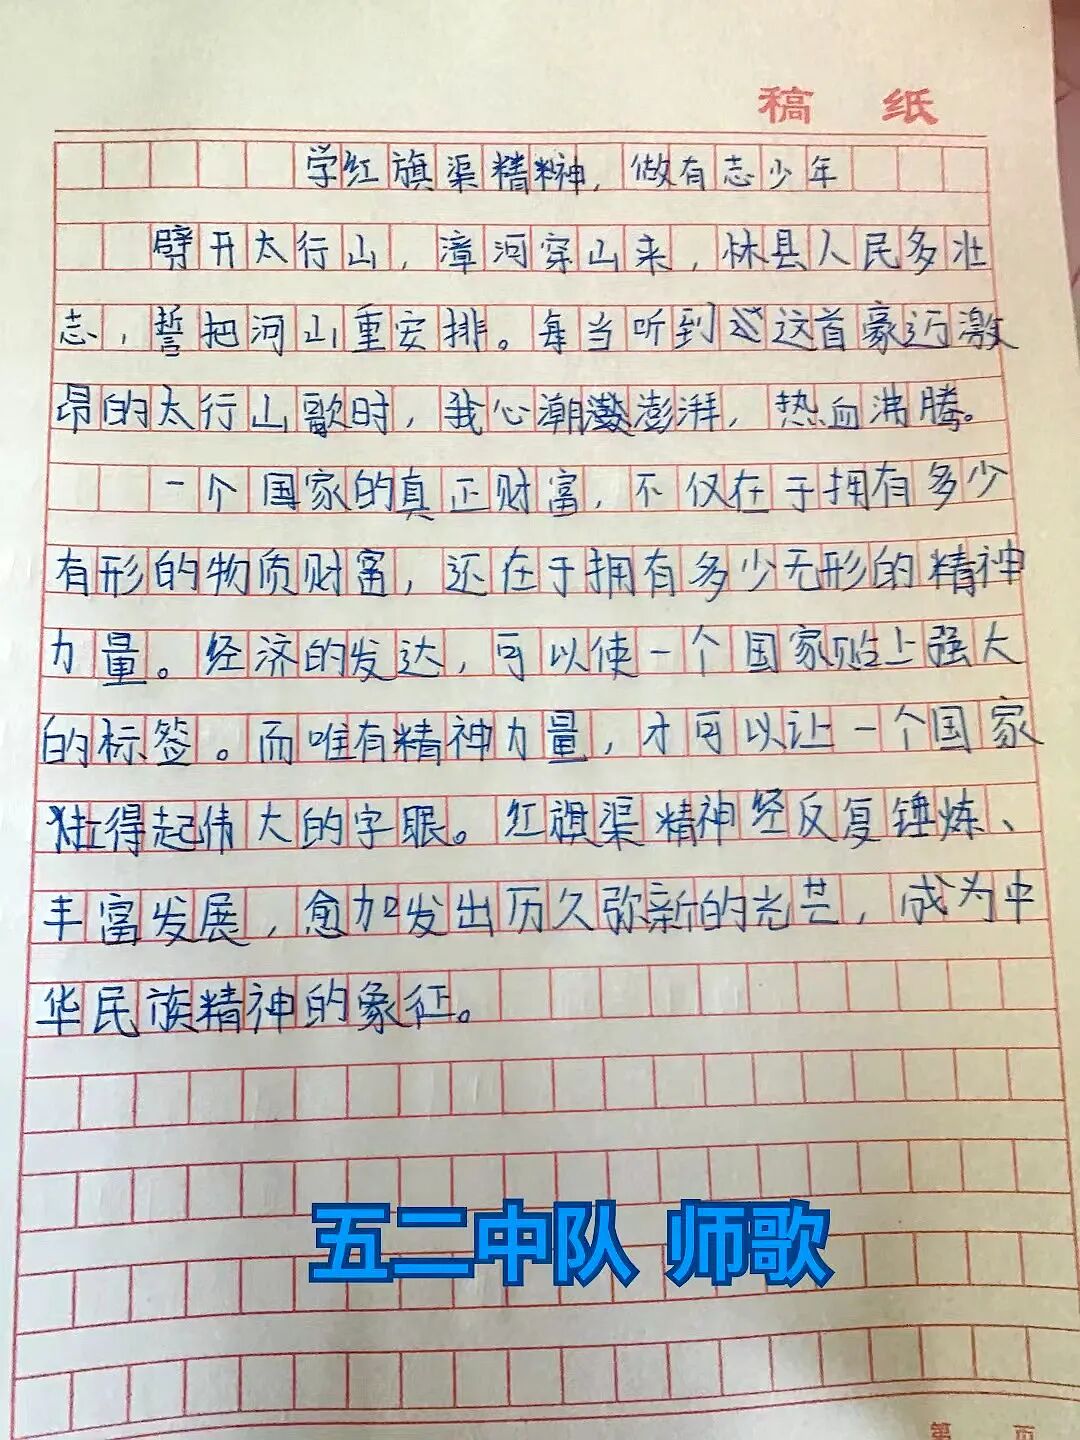 稿 纸
学红旗渠精神，做有志少年
劈开太行山，漳河穿山来，林县人民多壮
志，誓把河山重安排。每当听到这首豪迈激
昂的太行山歌时，我心潮澎湃，热血沸腾。
一个国家的真正财富，不仅在于拥有多少
有形的物质财富，还在于拥有多少无形的精神
力量。经济的发达，可以使一个国家贴上强大
的标签。而唯有精神力量，才可以让一个国家
担得起伟大的字眼。红旗渠精神经反复锤炼、
丰富发展，愈加发出历久弥新的光芒，成为中
华民族精神的象征。
五二中队 师歌
第 页